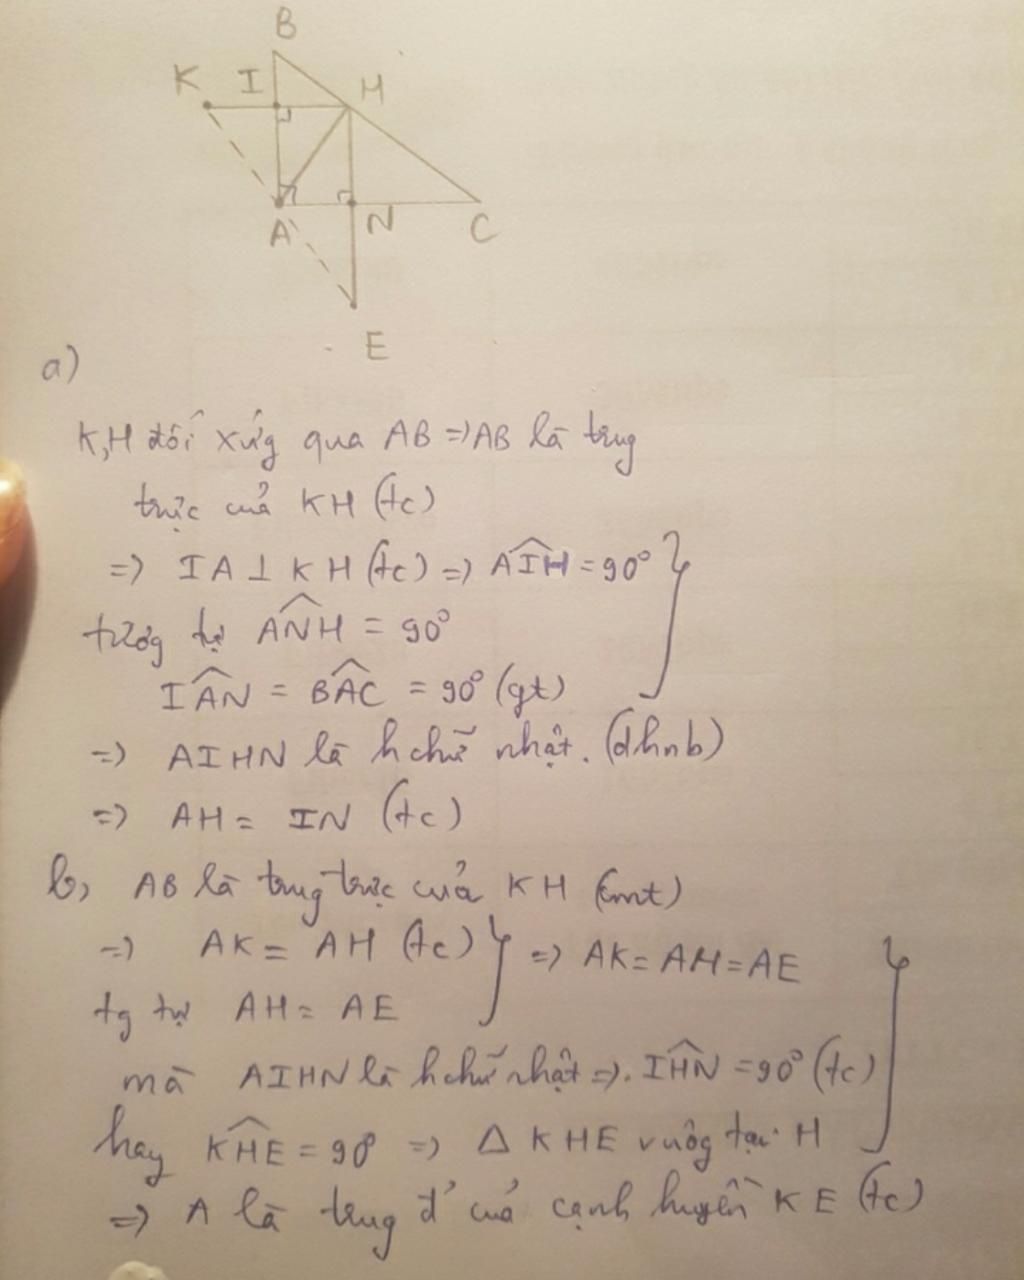 B
K I H
A N C
E
a)
K,H đối xứg qua AB => AB là trug
trực của KH (tc)
=> IA ⊥ KH (tc) => AIH = 90°
tươg tự ANH = 90°
IAN = BAC = 90° (gt)
=> AIHN là h chữ nhật. (dhnb)
=> AH = IN (tc)
b, AB là trug trực của KH (cmt)
=> AK = AH (tc) } => AK = AH = AE
tg tự AH = AE
mà AIHN là h chữ nhật =>. IHN = 90° (tc)
hay KHE = 90° => Δ KHE vuôg tại H
=> A là trug đ' của cạnh huyền KE (tc)